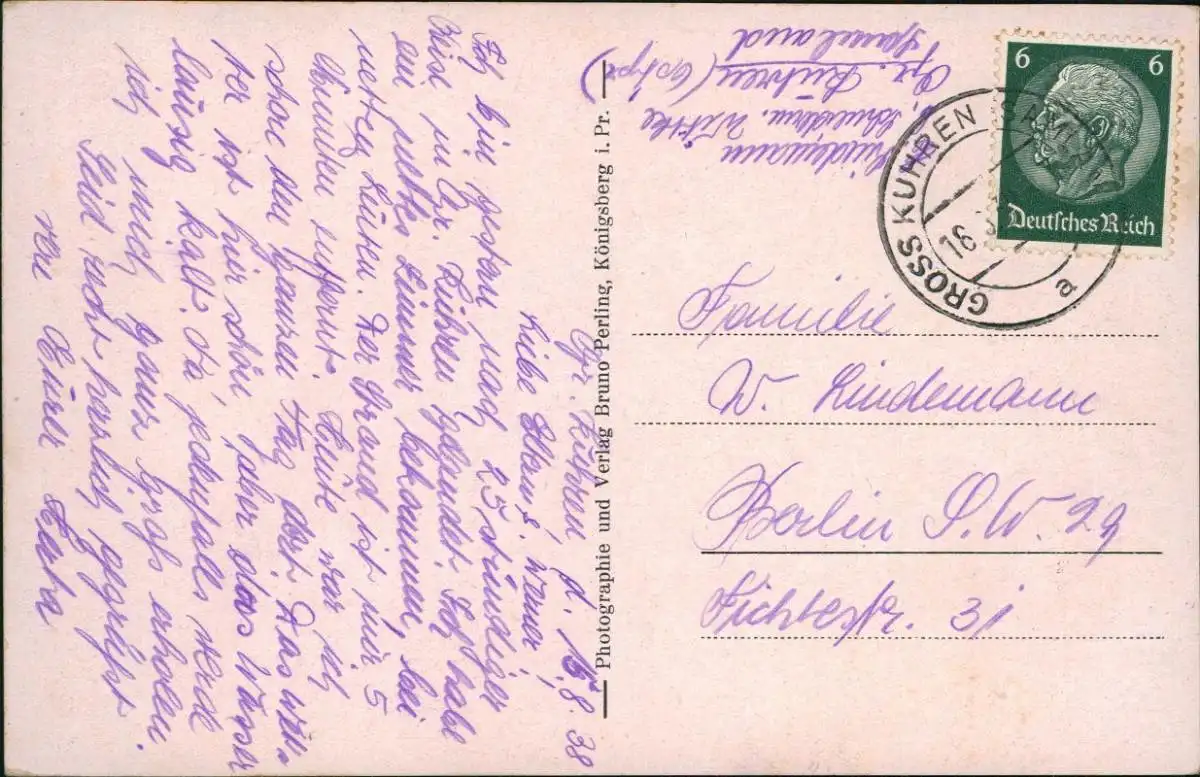 Gr. Kuhren, d. 15.8.38
Liebe Klaus, Werner,
Ich bin gestern nach 25 stündiger
in Gr. Kuhren gelandet. Ich habe
ein nettes Zimmer bekommen, bei
netten Leuten. Der Strand ist nur 5
Minuten entfernt. Heute war ich
schon den ganzen Tag dort. Das Wet-
ter ist hier schön, aber das Wasser
lausig kalt. Na, jedenfalls werde
ich mich ganz groß erholen.
Seid recht herzlich gegrüßt
von Eurer
Photographie und Verlag Bruno Perling, Königsberg i. Pr.
Lindemann
b. Schneiderm. Wittke
Gr. Kuhren (Ostpr.)
Samland
6 6
Deutsches Reich
GROSS KUHREN SAMLAND
16
a
Familie
W. Lindemann
Berlin S.W. 29
Fichtestr. 31